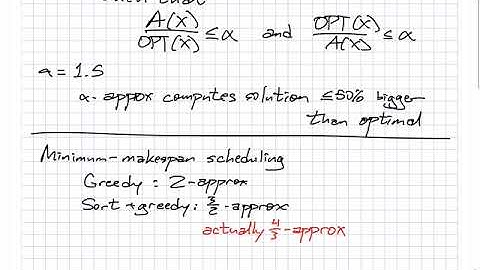 such that
A(X)/OPT(X) ≤ α and OPT(X)/A(X) ≤ α
α = 1.5
α-approx computes solution ≤50% bigger
than optimal
Minimum-makespan scheduling
Greedy : 2-approx
Sort + greedy : 3/2-approx
actually 4/3-approx